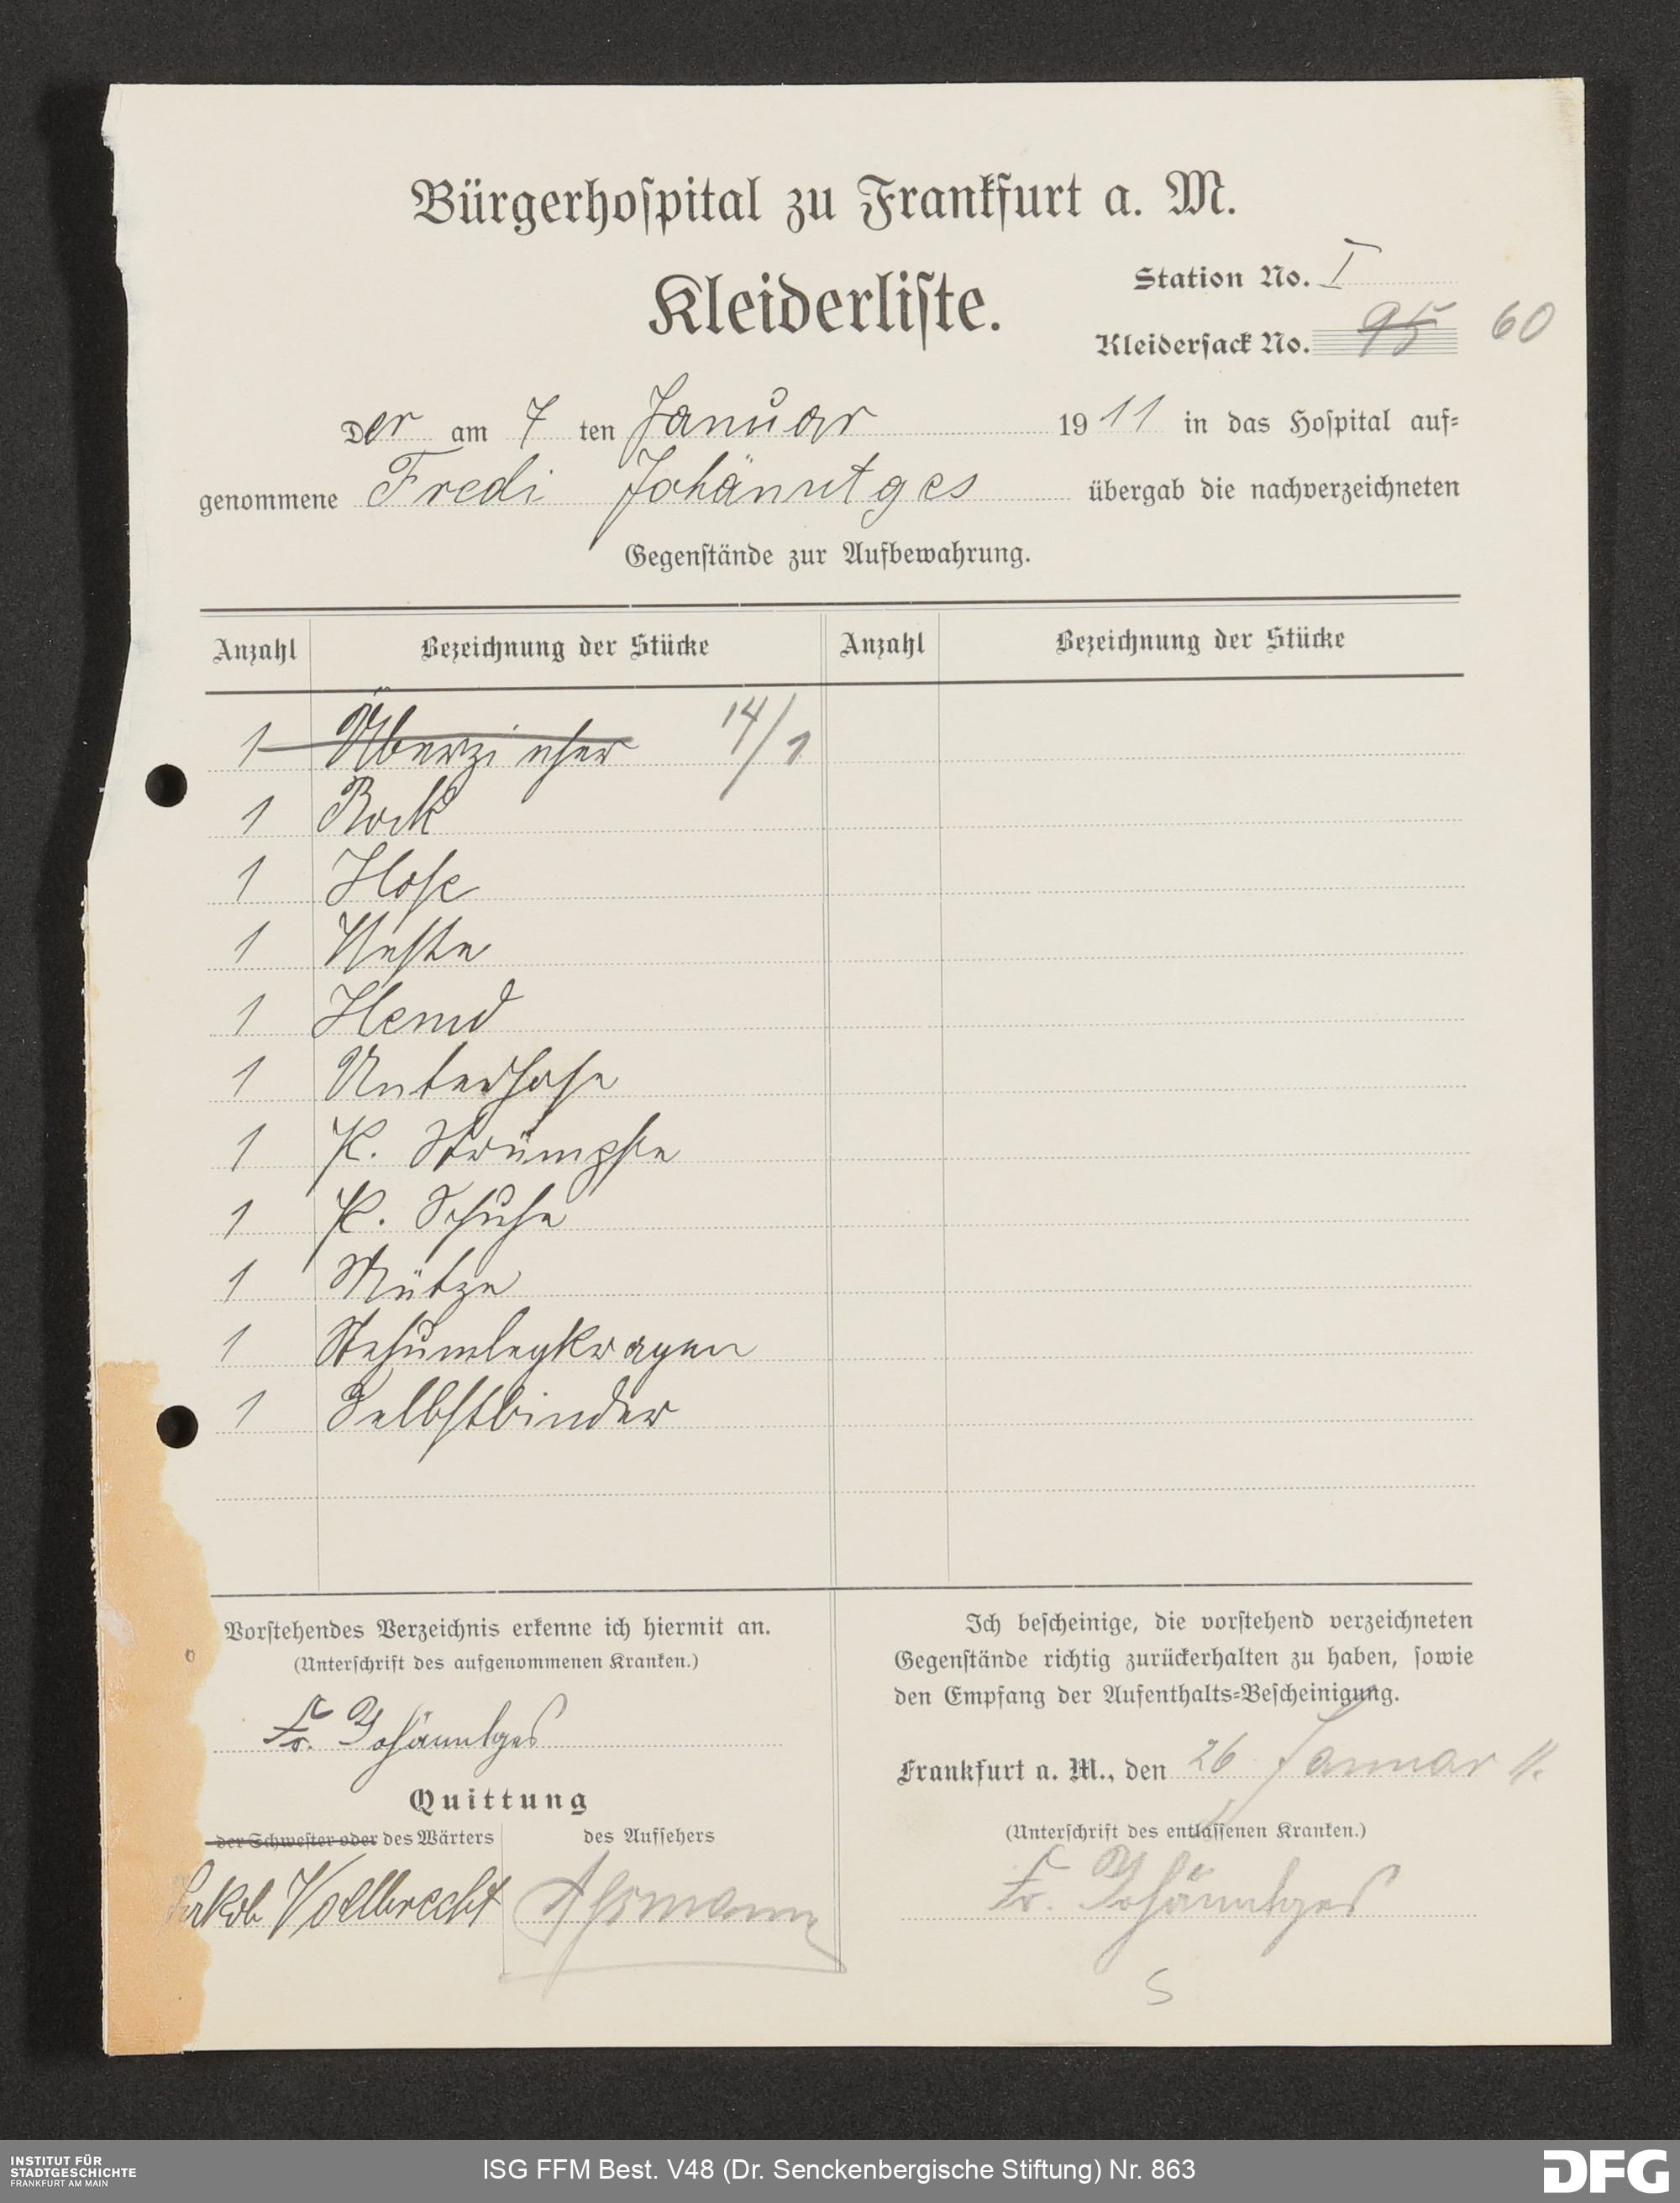 Bürgerhospital zu Frankfurt a. M.
Kleiderliste.
Station No. I
Kleidersack No. 95 60
Der am 7 ten Januar 1911 in das Hospital auf=
genommene Fredi Johänntges übergab die nachverzeichneten
Gegenstände zur Aufbewahrung.
Anzahl Bezeichnung der Stücke Anzahl Bezeichnung der Stücke
1 Überzieher 14/1
1 Rock
1 Hose
1 Weste
1 Hemd
1 Unterhose
1 P. Strümpfe
1 P. Schuhe
1 Mütze
1 Stehumlegkragen
1 Selbstbinder
Vorstehendes Verzeichnis erkenne ich hiermit an.
(Unterschrift des aufgenommenen Kranken.)
Fr. Johänntges
Quittung
der Schwester oder des Wärters
des Aufsehers
Jakob Vollbrecht
Ich bescheinige, die vorstehend verzeichneten
Gegenstände richtig zurückerhalten zu haben, sowie
den Empfang der Aufenthalts=Bescheinigung.
Frankfurt a. M., den 26 Januar 11.
(Unterschrift des entlassenen Kranken.)
Fr. Johänntges
S
INSTITUT FÜR
STADTGESCHICHTE
FRANKFURT AM MAIN
ISG FFM Best. V48 (Dr. Senckenbergische Stiftung) Nr. 863
DFG